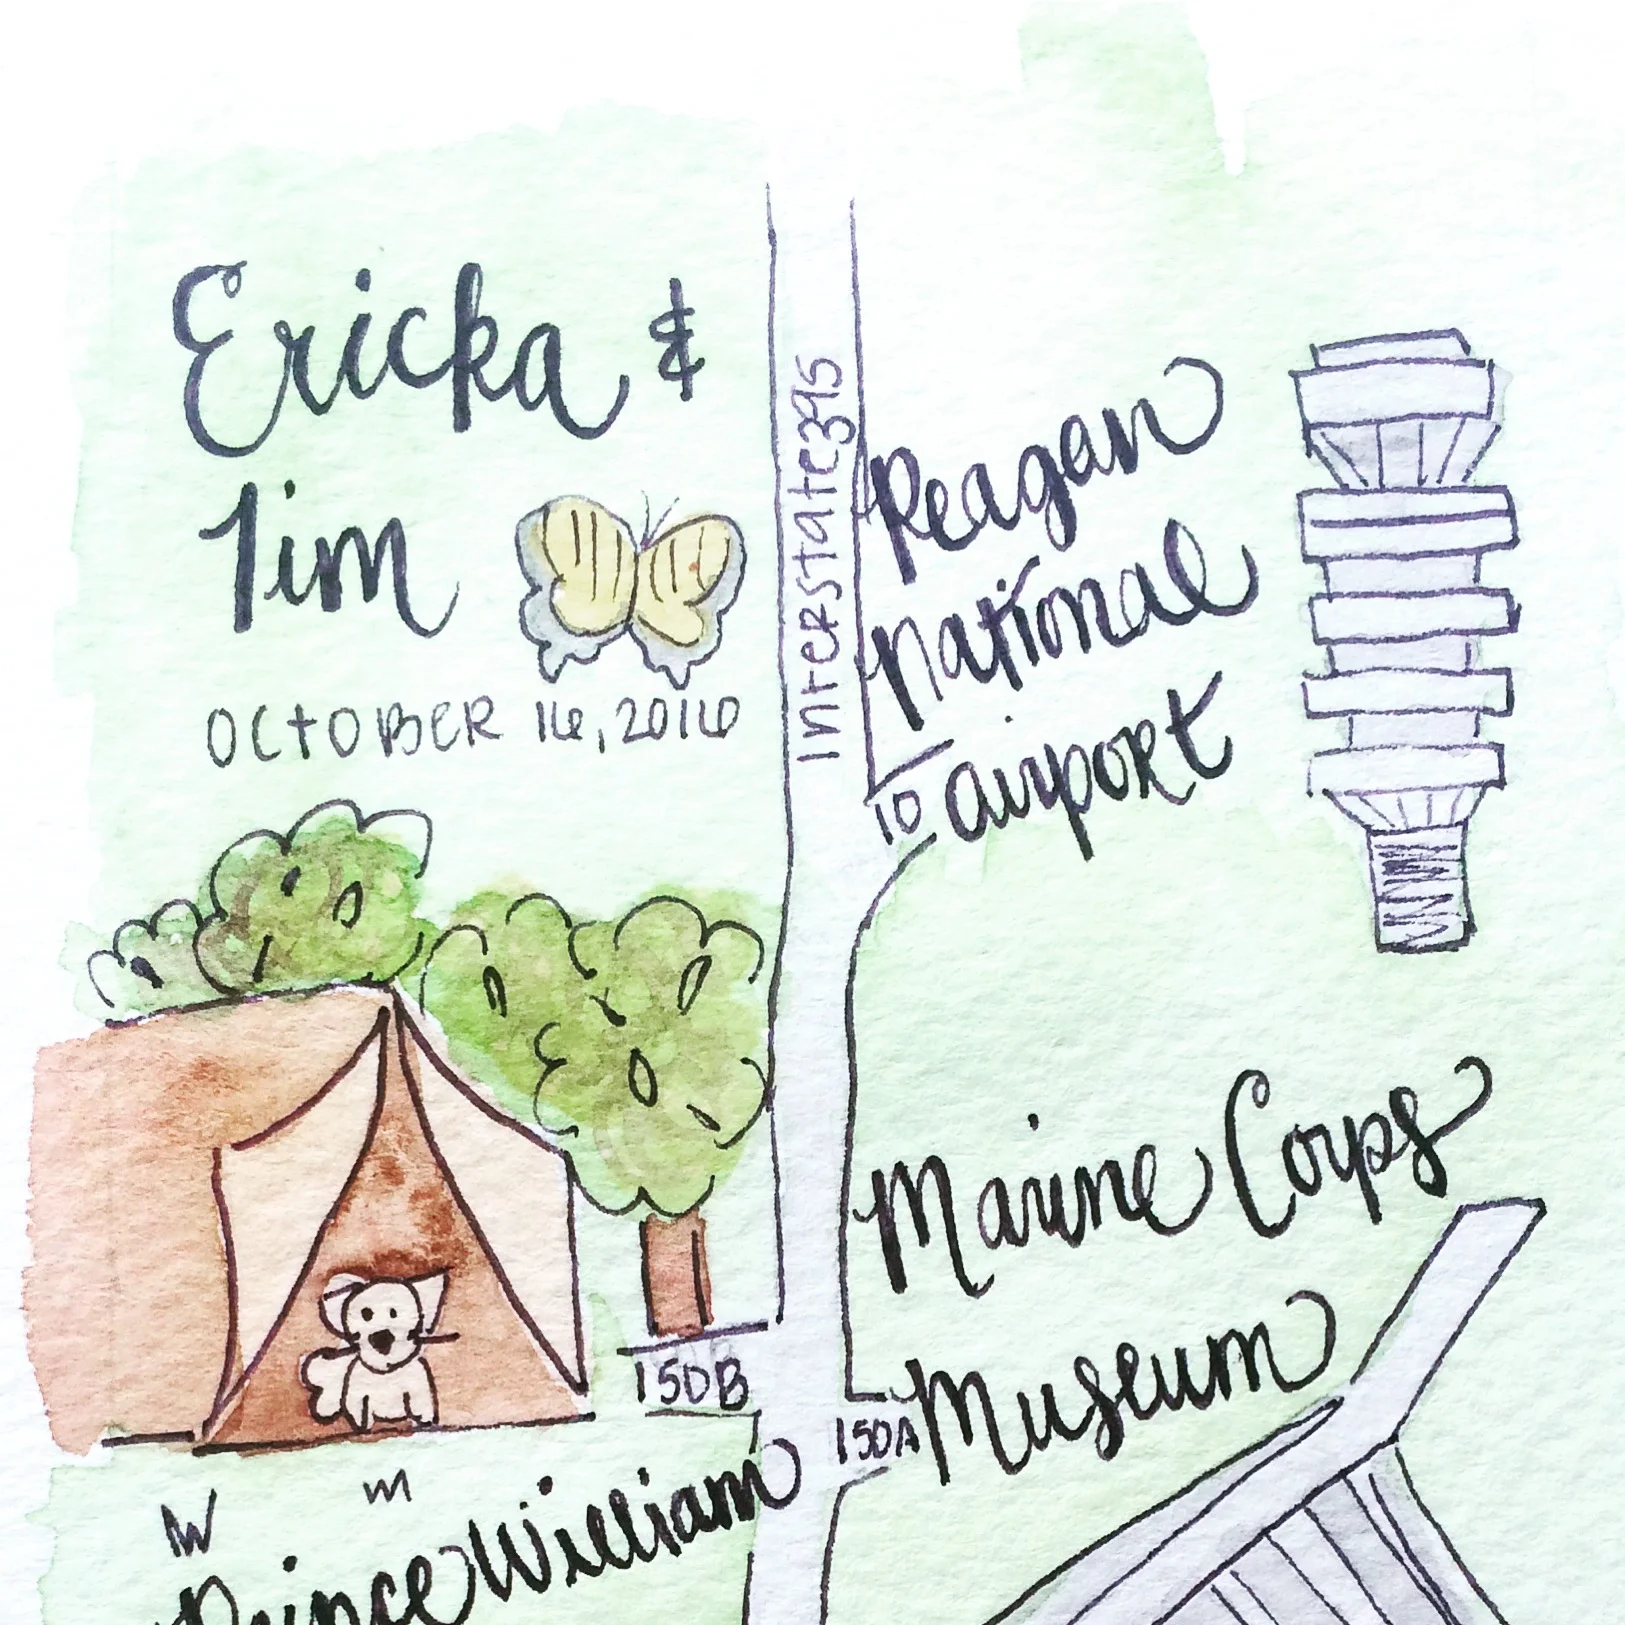 Ericka &
Tim
OCTOBER 16, 2016
Interstate 395
Reagan
National
Airport
10
Marine Corps
Museum
150B
150A
Prince William